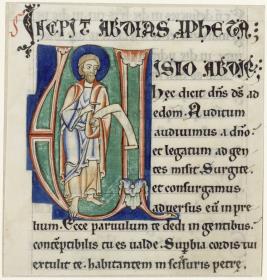 INCIPIT ABDIAS PPHETA;
VISIO ABDIE;
Hec dicit dns ds ad
edom. Auditum
audiuimus a dno
et legatum ad gen
tes misit. Surgite
et consurgamus
aduersus eu in pre
lium. Ecce paruulum te dedi in gentibus.
conteptibilis tu es ualde. Supbia cordis tui
extulit te. habitantem in scissuris petre.